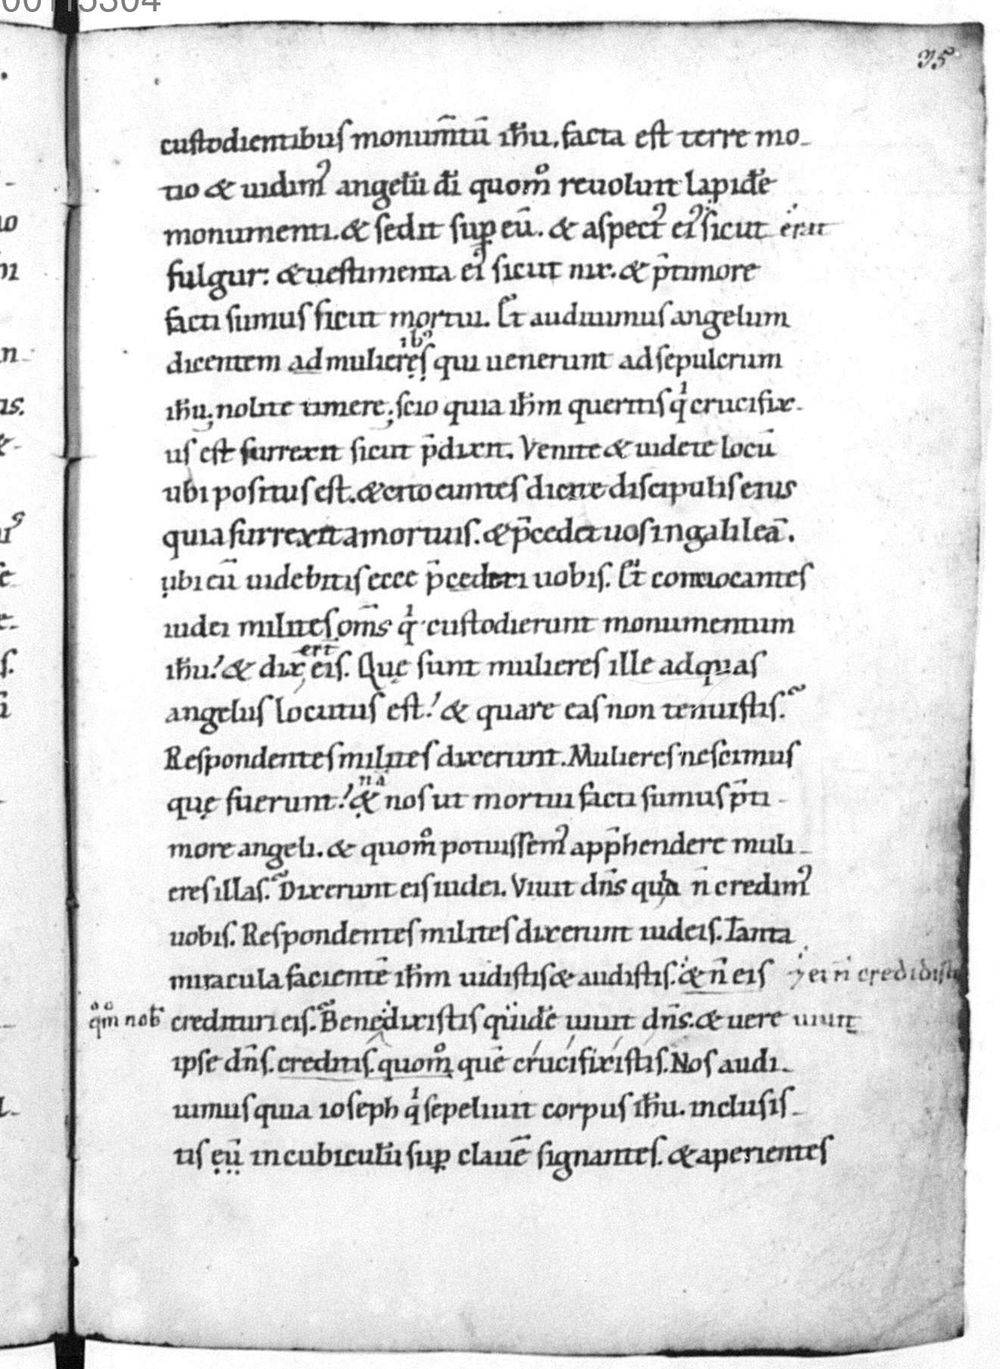 35
custodientibus monum̄tū ih̄u. facta est terre mo-
tio & uidim᷒ angelū dī quom̊ reuoluit lapidē
monumenti. & sedit sup eū. & aspect᷒ ei᷒ sicut erat
fulgur: & uestimenta ei᷒ sicut nix. & p̄timore
facti sumus sicut mortui. Et audiuimus angelum
ib᷒
dicentem ad mulieres qui uenerunt ad sepulcrum
ih̄u; nolite timere; scio quia ih̄m queritis qͥ crucifix-
us est surrexit sicut p̄dixit. Venite & uidete locū
ubi positus est. & cito euntes dicite discipulis eius
quia surrexit a mortuis. & p̄cedet uos in galileā.
ubi eū uidebitis ecce p̄cederi uobis. Et conuocantes
iudei milites om̄s qͥ custodierunt monumentum
ert
ih̄u! & dix eis. Quę sunt mulieres ille ad quas
angelus locutus est! & quare eas non tenuistis.
Respondentes milites dixerunt. Mulieres nescimus
na
quę fuerunt! & nos ut mortui facti sumus p̄ ti-
more angeli. & quom̊ potuissem᷒ app̄hendere muli-
eres illas. Dixerunt eis iudei. Viuit dn̄s quia n̄ credim᷒
uobis. Respondentes milites dixerunt iudeis. Tanta
miracula facientē ih̄m uidistis & audistis. & n̄ eis ⁊ ei n̄ credidistis
qm̊ nob̄ credituri eis. Benedixistis quidē uiuit dn̄s. & uere uiuit
ipse dn̄s. creditis. quom̊ quē crucifixistis. Nos audi-
uimus quia ioseph qͥ sepeliuit corpus ih̄u. inclusis-
tis eū in cubiculū sup clauē signantes. & aperientes